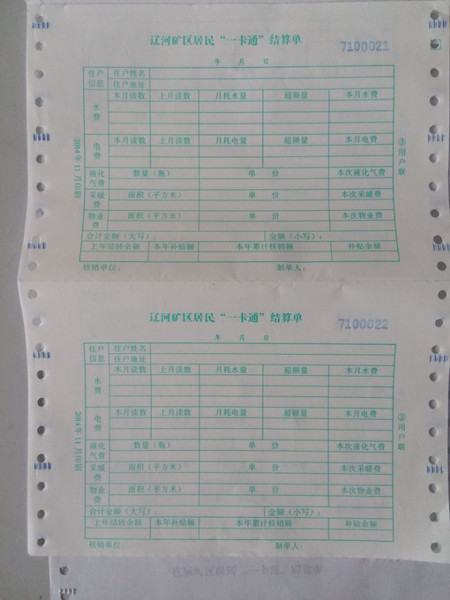 辽河矿区居民“一卡通”结算单
7100021
年 月 日
住户信息 住户姓名
住户地址
水费 本月读数 上月读数 月耗水量 超额量 本月水费
电费 本月读数 上月读数 月耗电量 超额量 本月电费
液化气费 数量（瓶） 单 价 本次液化气费
采暖费 面积（平方米） 单 价 本次采暖费
物业费 面积（平方米） 单 价 本次物业费
合计金额（大写）： 金额（小写）：
上年结转金额 本年补贴额 本年累计核销额 补贴余额
核销单位： 制单人：
2014年11月印制
②用户联
辽河矿区居民“一卡通”结算单
7100022
年 月 日
住户信息 住户姓名
住户地址
水费 本月读数 上月读数 月耗水量 超额量 本月水费
电费 本月读数 上月读数 月耗电量 超额量 本月电费
液化气费 数量（瓶） 单 价 本次液化气费
采暖费 面积（平方米） 单 价 本次采暖费
物业费 面积（平方米） 单 价 本次物业费
合计金额（大写）： 金额（小写）：
上年结转金额 本年补贴额 本年累计核销额 补贴余额
核销单位： 制单人：
2014年11月印制
②用户联